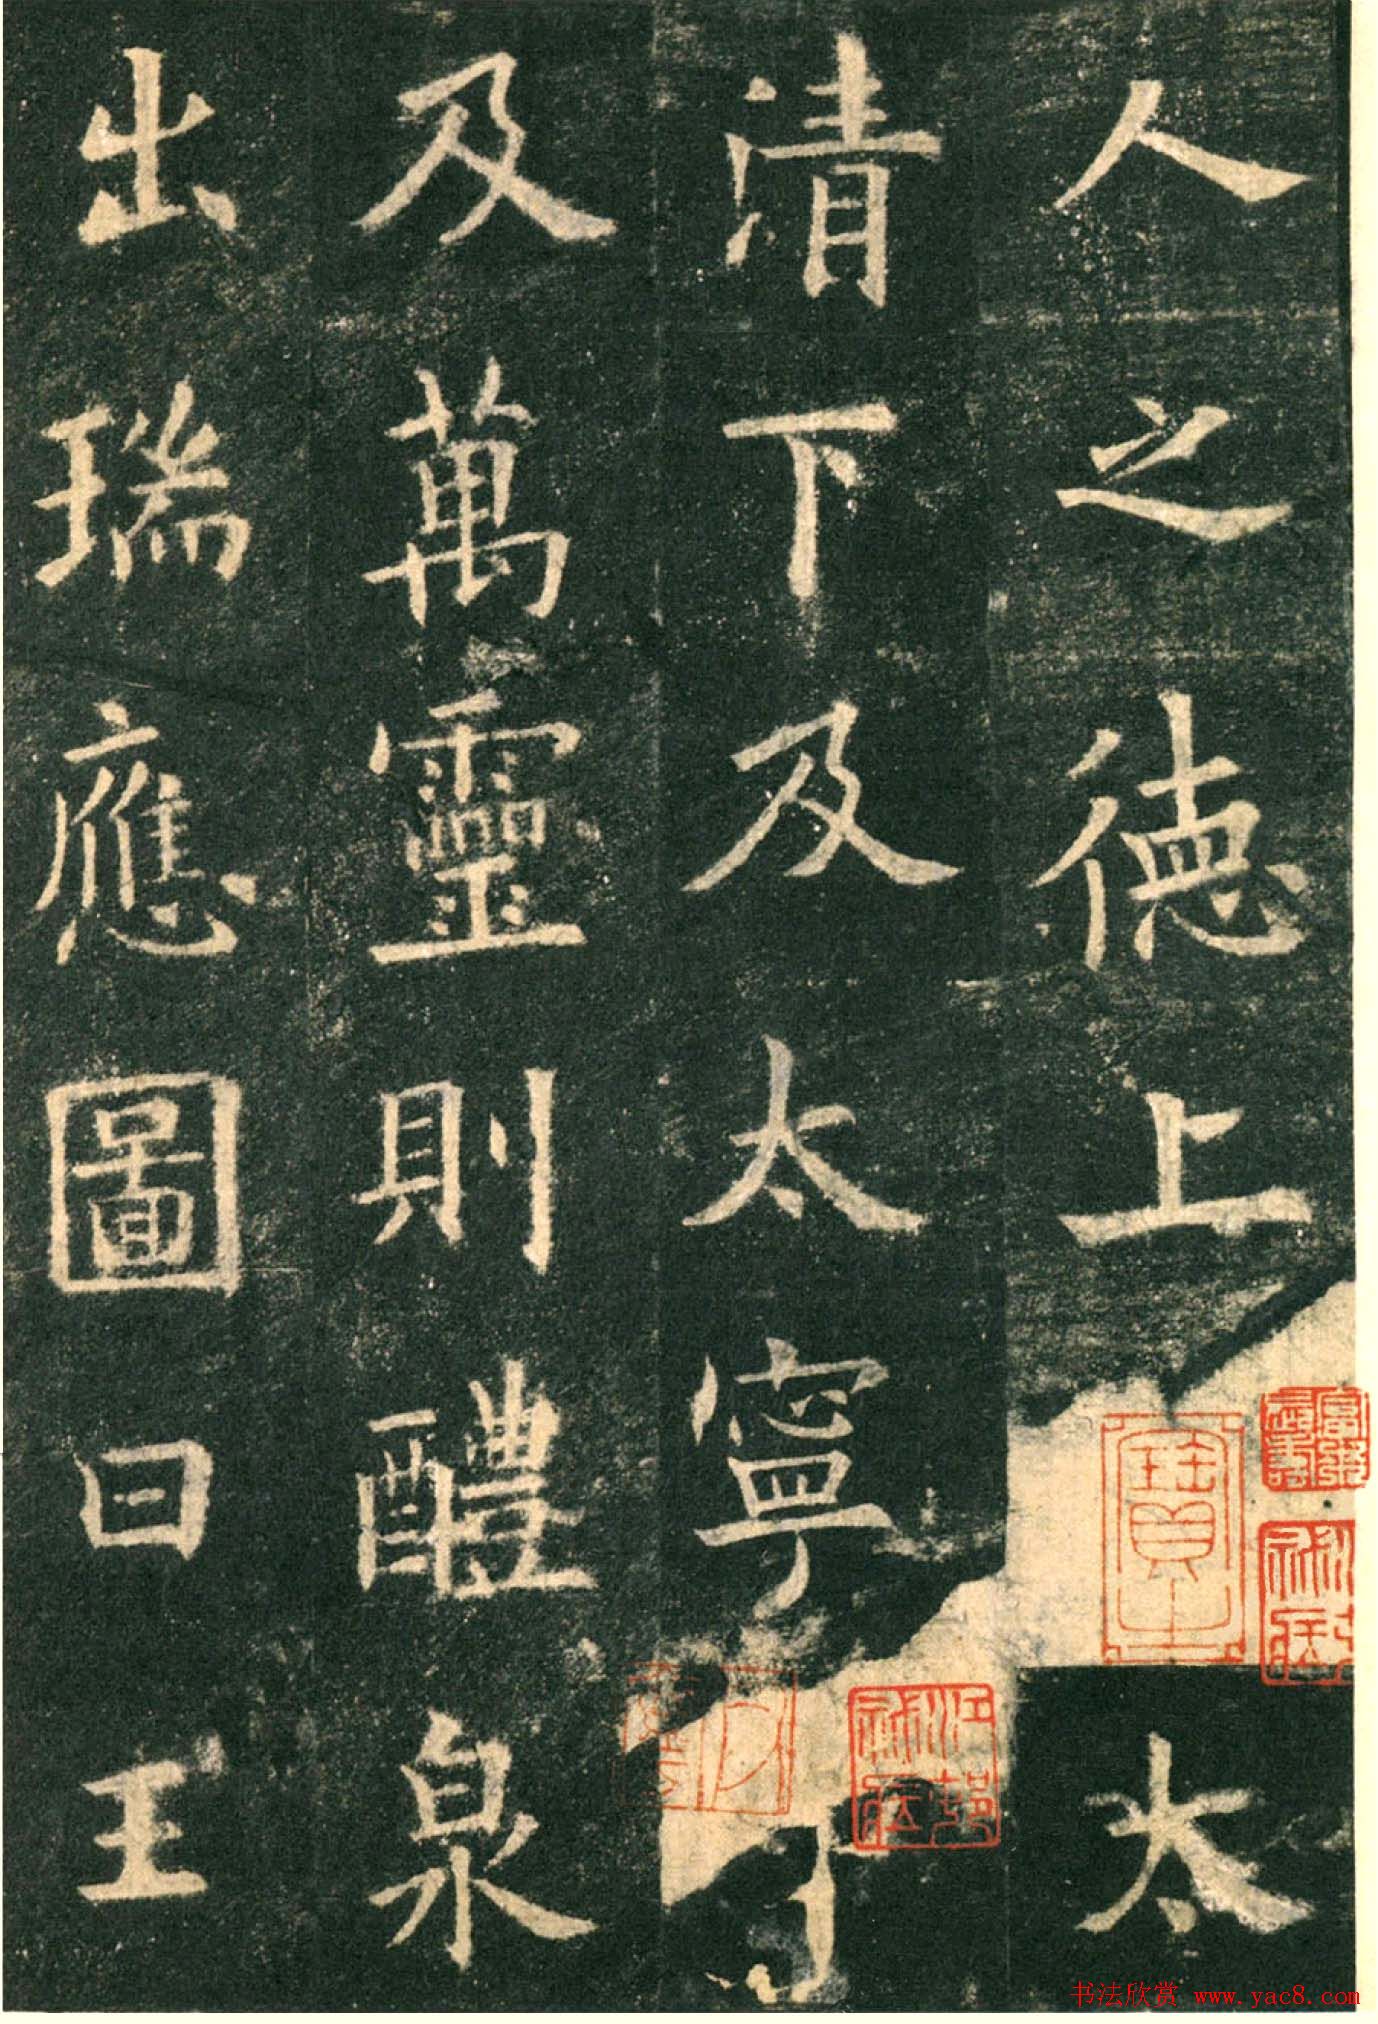 人之德上太
清下及太寧
及萬靈則醴泉
出瑞應圖曰王
书法欣赏 www.yac8.com